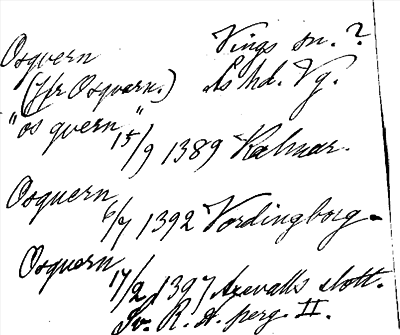 Osquern Vings sn. ?
(Yfr Osquern.) Ås hd. Vg.
"os quern" 15/9 1389 Kalmar.
Osquern 6/7 1392 Vordingborg.
Osquern 17/2 1397 Axevalls slott.
Sv. R. A. perg. II.